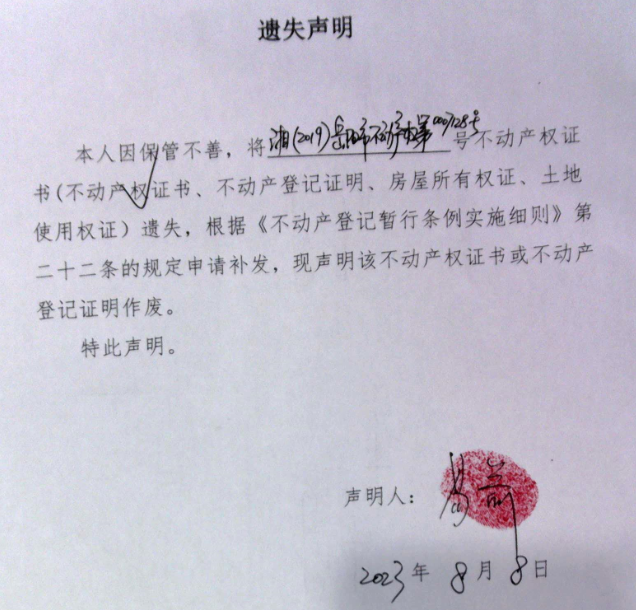 遗失声明
本人因保管不善，将湘(2019)岳阳市不动产权第0007128号号不动产权证
书(不动产权证书、不动产登记证明、房屋所有权证、土地
使用权证)遗失，根据《不动产登记暂行条例实施细则》第
二十二条的规定申请补发，现声明该不动产权证书或不动产
登记证明作废。
特此声明。
声明人：易
2023年8月8日